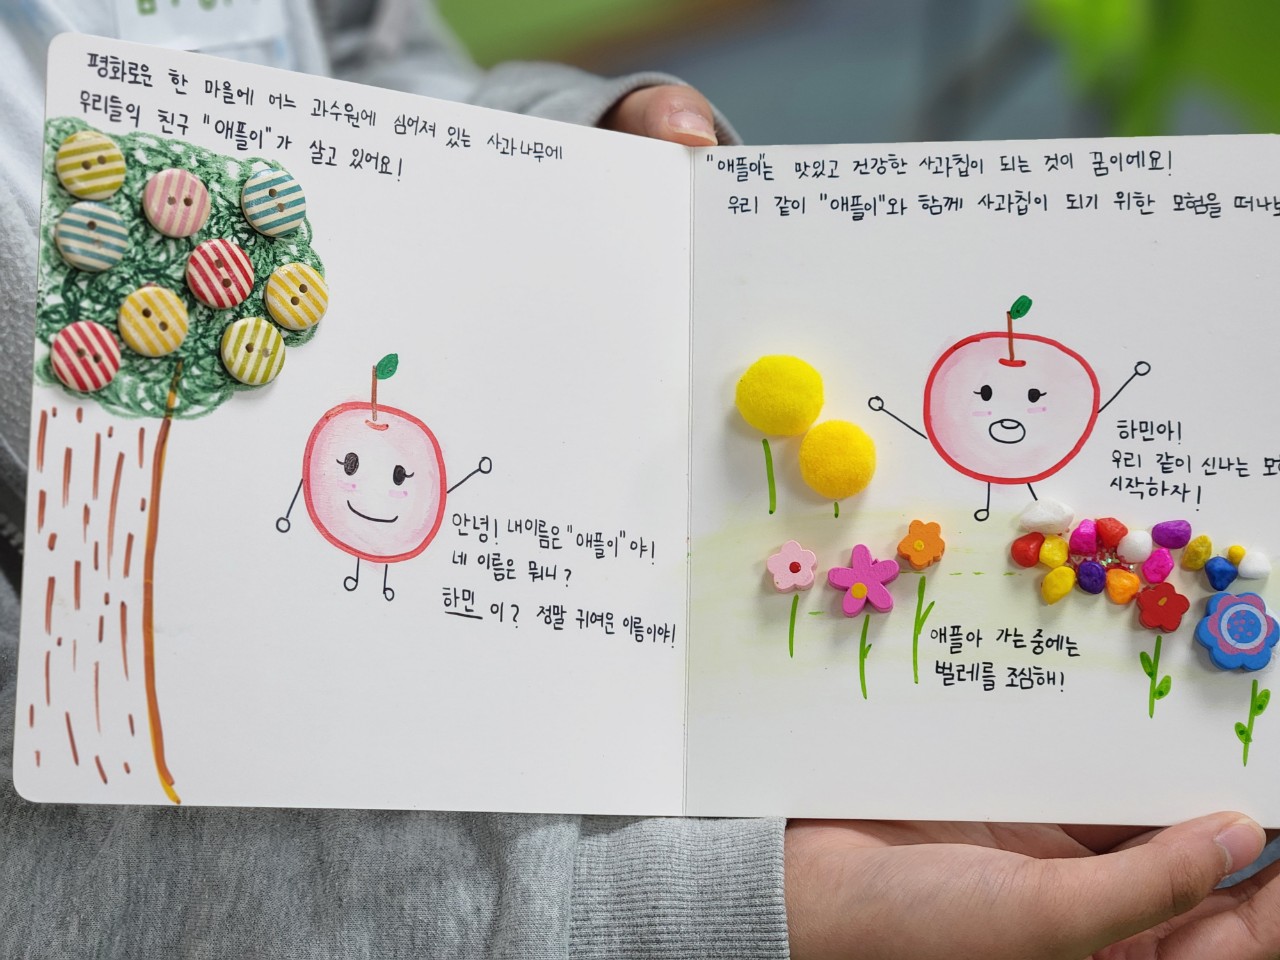 평화로운 한 마을에 어느 과수원에 심어져 있는 사과나무에
우리들의 친구 "애플이"가 살고 있어요!
안녕! 내이름은 "애플이" 야!
네 이름은 뭐니?
하민 이? 정말 귀여운 이름이야!
"애플이"는 맛있고 건강한 사과칩이 되는 것이 꿈이에요!
우리 같이 "애플이"와 함께 사과칩이 되기 위한 모험을 떠나
하민아!
우리 같이 신나는
시작하자!
애플아 가는 중에는
벌레를 조심해!